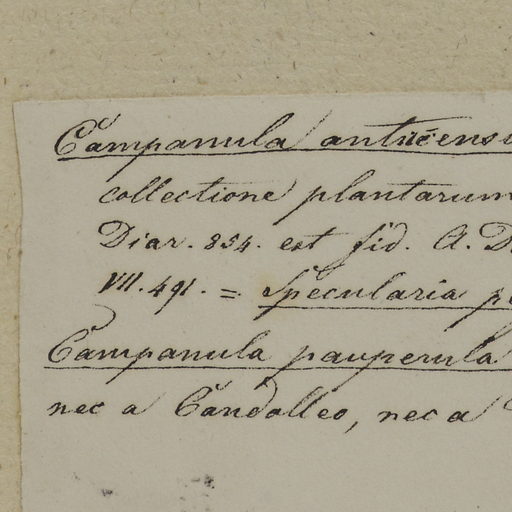 Campanula antucensi
collectione plantarum
Diar. 854. est fid. A. D
VII. 491. = Specularia pe
Campanula pauperula
nec a Candolleo, nec a